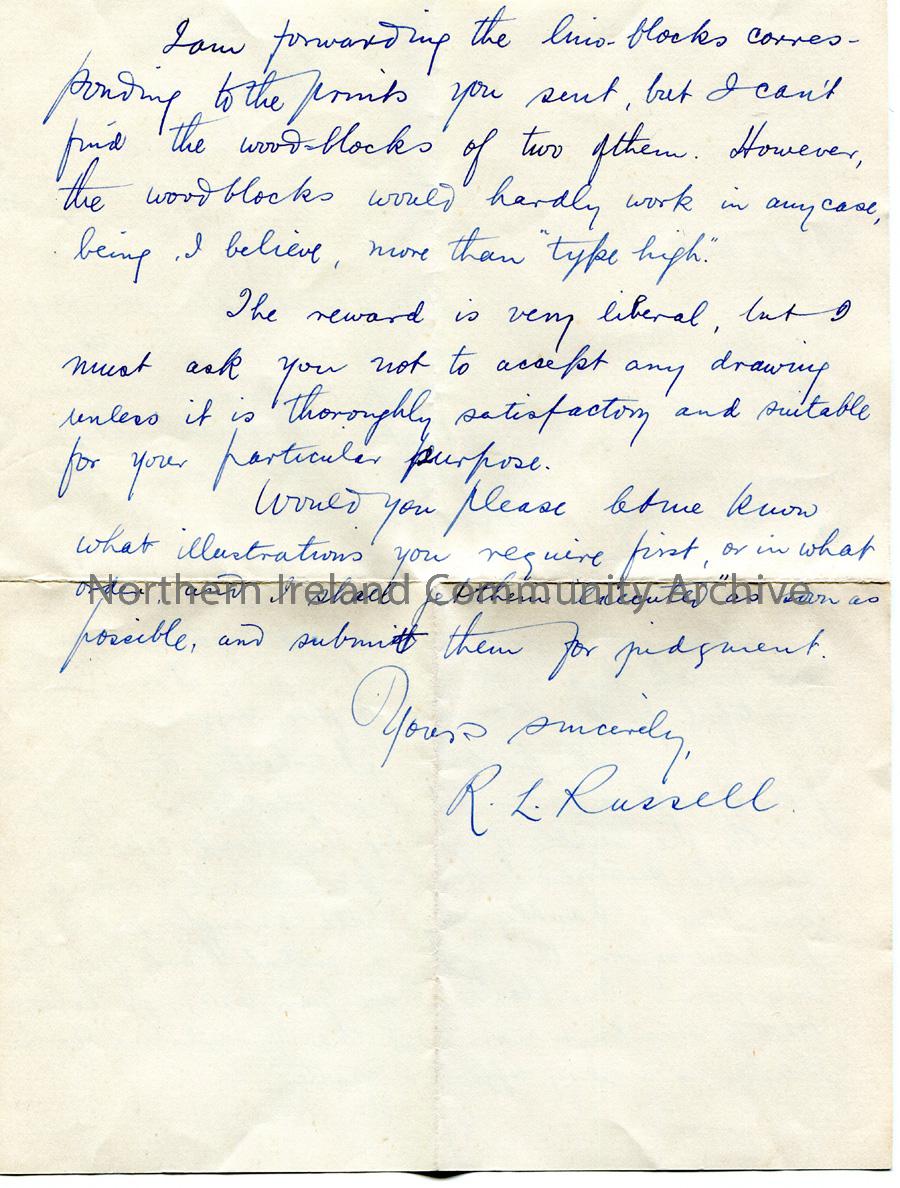 I am forwarding the lino-blocks corres-
ponding to the prints you sent, but I can't
find the wood-blocks of two of them. However,
the woodblocks would hardly work in any case,
being, I believe, more than "type high".
The reward is very liberal, but I
must ask you not to accept any drawing
unless it is thoroughly satisfactory and suitable
for your particular purpose.
Would you please let me know
what illustrations you require first, or in what
order, and I shall get them "executed" as soon as
Northern Ireland Community Archive
possible, and submitt them for judgment.
Yours sincerely,
R. L. Russell.